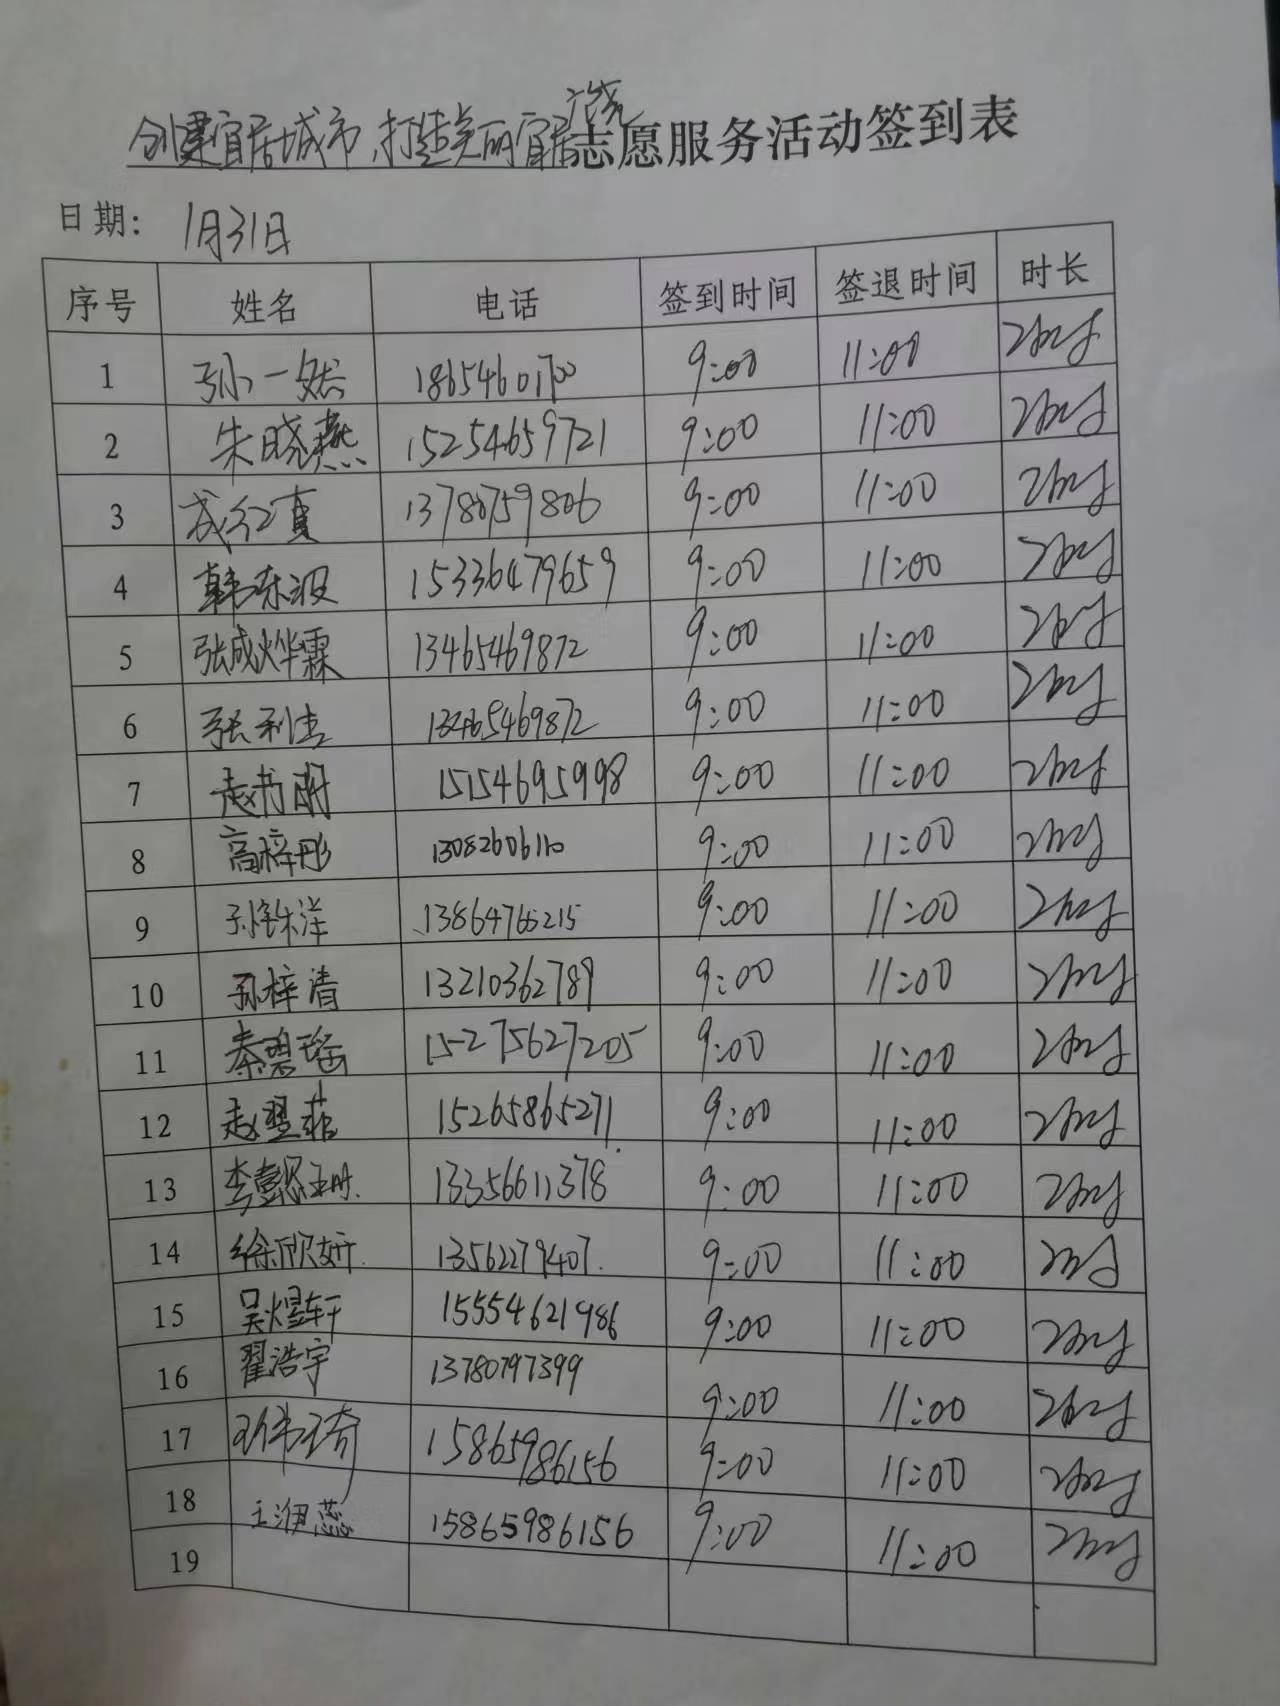 创建宜居城市、打造美丽宜居 志愿服务活动签到表
日期: 1月31日
序号 姓名 电话 签到时间 签退时间 时长
1 孙一然 18654601700 9:00 11:00 2小时
2 朱晓燕 15254659721 9:00 11:00 2小时
3 成红真 13780759806 9:00 11:00 2小时
4 韩东波 15336479659 9:00 11:00 2小时
5 张成烨霖 13465469872 9:00 11:00 2小时
6 张利杰 13465469872 9:00 11:00 2小时
7 赵书 15154695998 9:00 11:00 2小时
8 高梓彤 13082606110 9:00 11:00 2小时
9 孙铢洋 13864765215 9:00 11:00 2小时
10 孙梓清 13210362789 9:00 11:00 2小时
11 秦碧瑶 15275627205 9:00 11:00 2小时
12 赵翌菲 15265865271 9:00 11:00 2小时
13 李 13356611378 9:00 11:00 2小时
14 徐欣妍 13562279407 9:00 11:00 2小时
15 吴煜轩 15554621986 9:00 11:00 2小时
16 翟浩宇 13780797399 9:00 11:00 2小时
17 15865986156 9:00 11:00 2小时
18 王洢蕊 15865986156 9:00 11:00 2小时
19